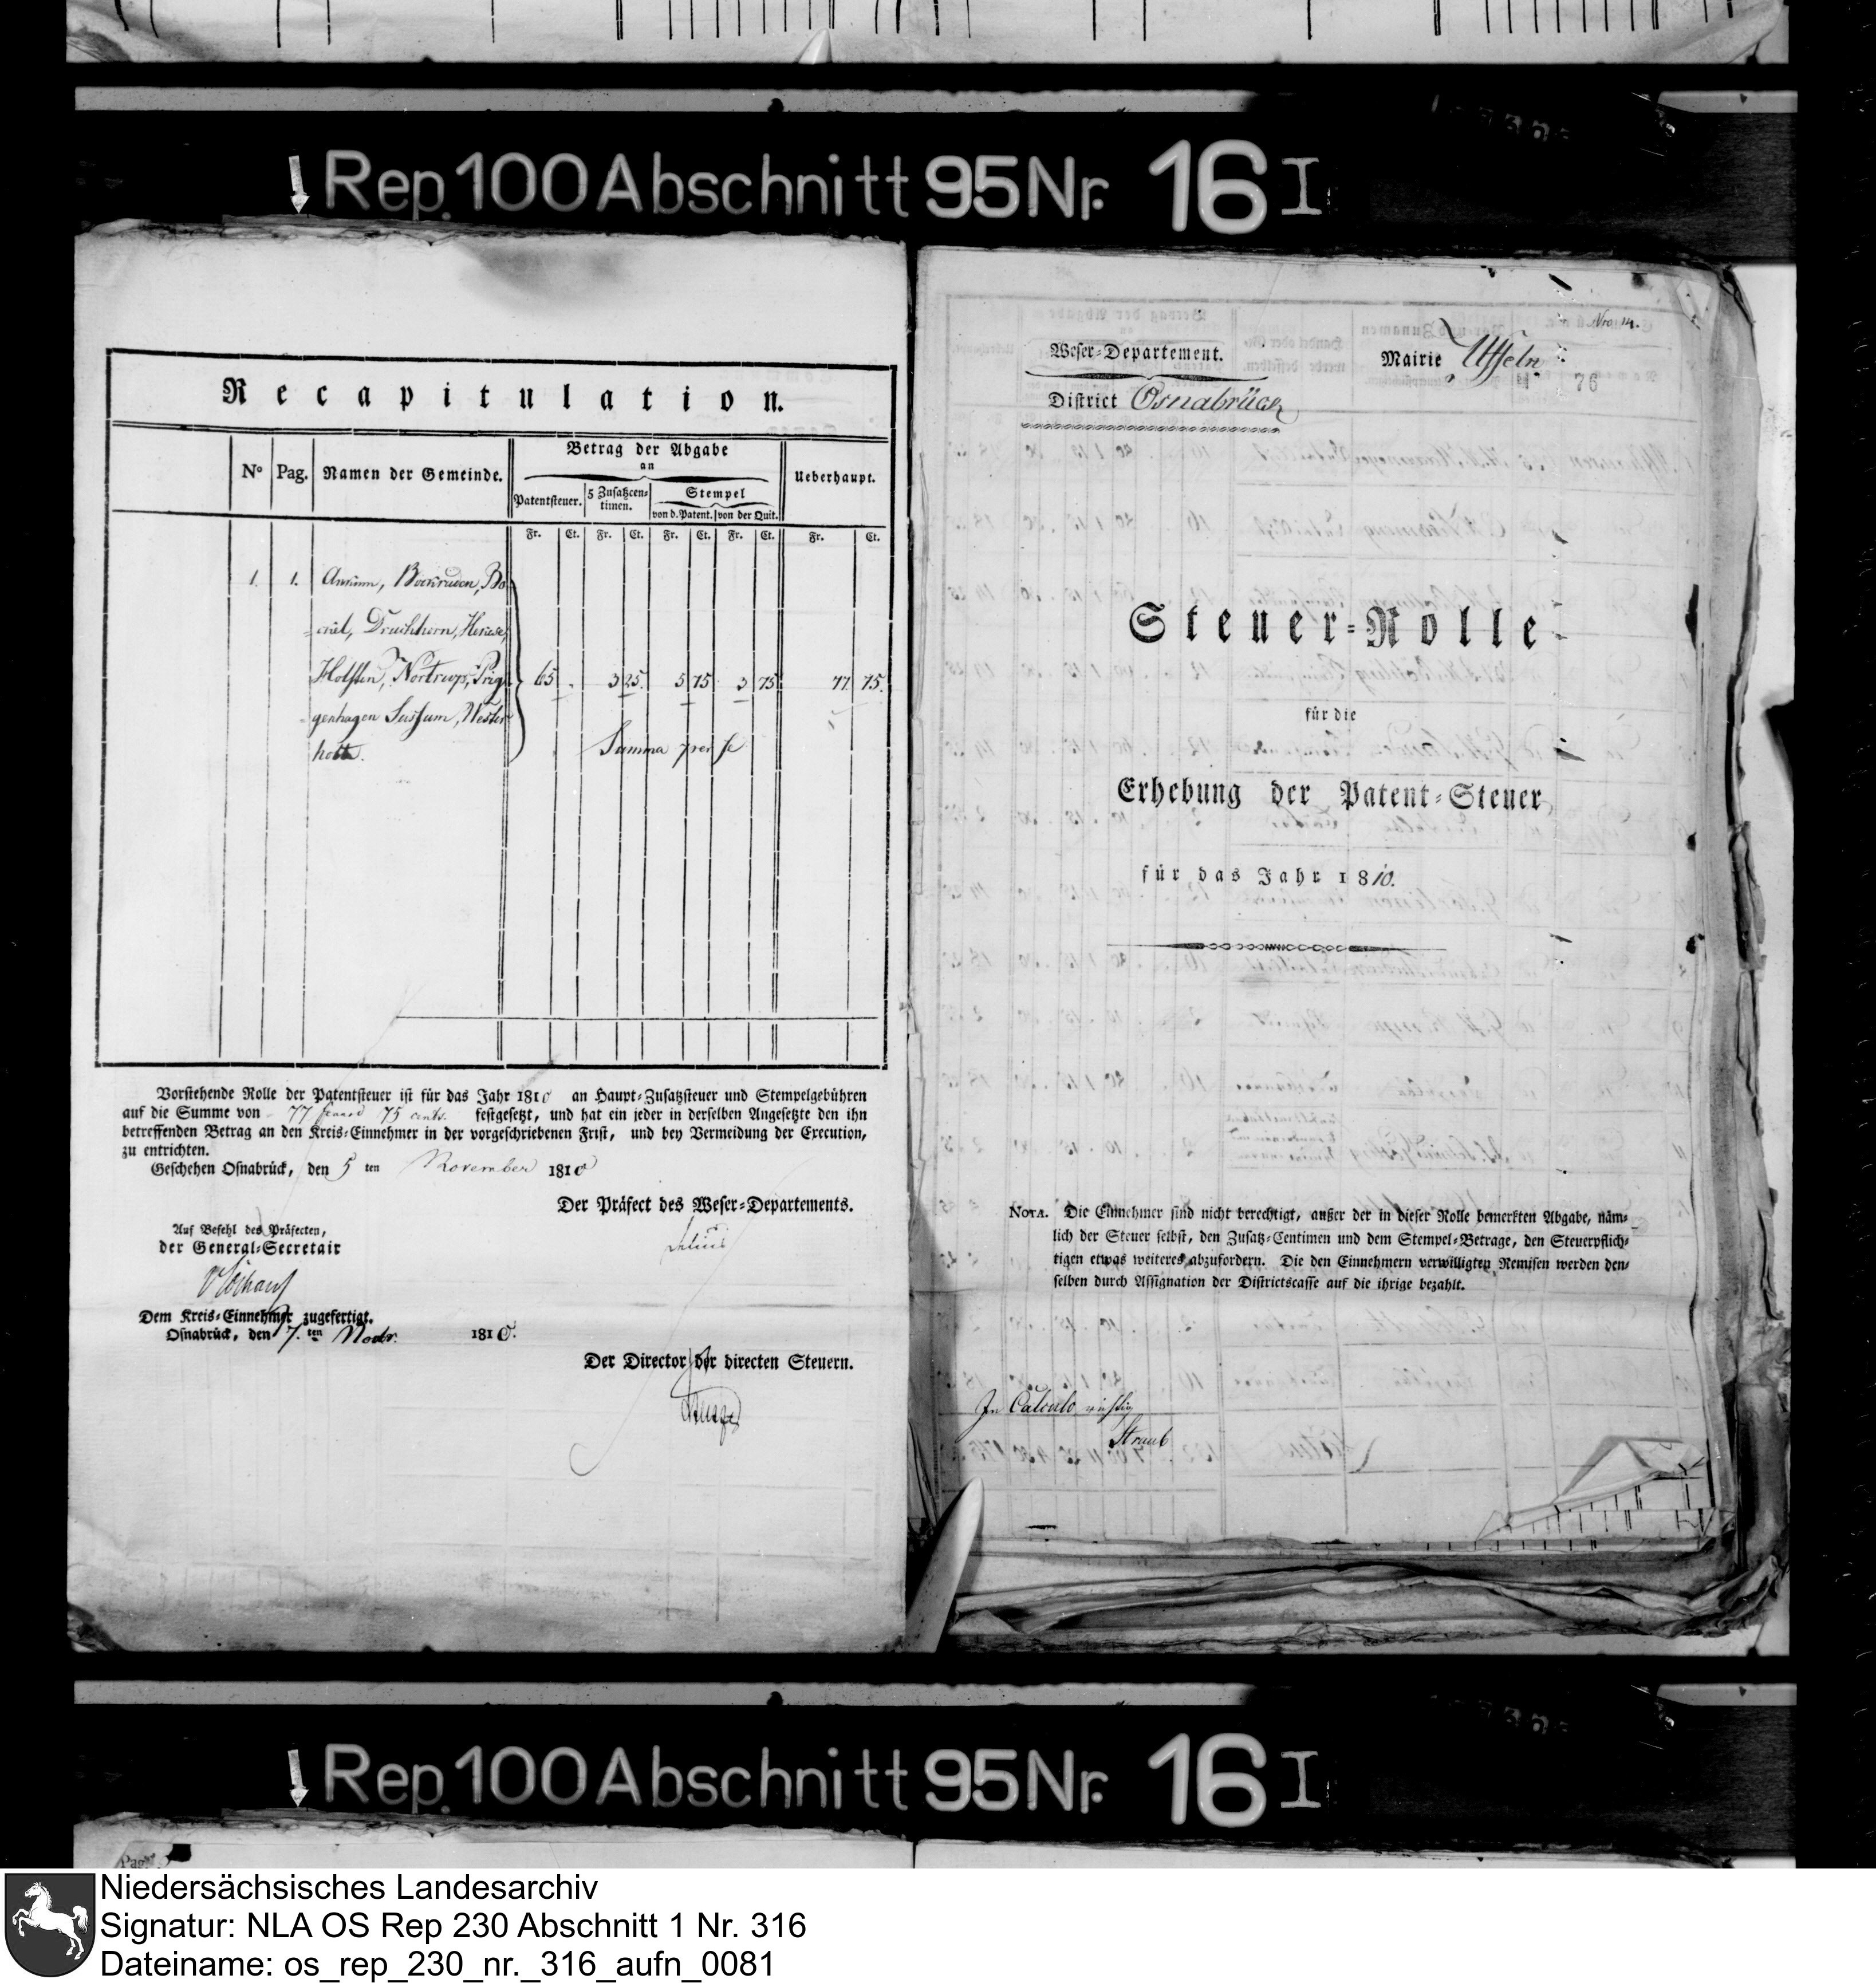 Rep. 100 Abschnitt 95 Nr. 16 I
Recapitulation.
Nº Pag. Namen der Gemeinde. Betrag der Abgabe an Ueberhaupt.
Patentsteuer. 5 Zusatzcentimen. Stempel
von d. Patent. von der Quit.
Fr. Ct. Fr. Ct. Fr. Ct. Fr. Ct. Fr. Ct.
1. 1. Ankum, Bo
Druchhorn,
Holsten, Nortrup, Prig 65 . 3 25. 5 75 3 75 77 75.
genhagen Sussum, Wester
holte.
Summa per se
Vorstehende Rolle der Patentsteuer ist für das Jahr 1810 an Haupt-Zusatzsteuer und Stempelgebühren
auf die Summe von 77 francs 75 cents. festgesetzt, und hat ein jeder in derselben Angesetzte den ihn
betreffenden Betrag an den Kreis-Einnehmer in der vorgeschriebenen Frist, und bey Vermeidung der Execution,
zu entrichten.
Geschehen Osnabrück, den 5 ten November 1810
Der Präfect des Weser-Departements.
Delius
Auf Befehl des Präfecten,
der General-Secretair
Dem Kreis-Einnehmer zugefertigt.
Osnabrück, den 7. ten Novbr. 1810.
Der Director der directen Steuern.
Nro. 14.
Weser-Departement.
Mairie Uffeln
76
District Osnabrück
Steuer-Rolle
für die
Erhebung der Patent-Steuer
für das Jahr 1810.
NOTA. Die Einnehmer sind nicht berechtigt, außer der in dieser Rolle bemerkten Abgabe, näm-
lich der Steuer selbst, den Zusatz-Centimen und dem Stempel-Betrage, den Steuerpflich-
tigen etwas weiteres abzufordern. Die den Einnehmern verwilligten Remisen werden den-
selben durch Assignation der Districtscasse auf die ihrige bezahlt.
In Calculo richtig
Straub
Rep. 100 Abschnitt 95 Nr. 16 I
Pag.
Niedersächsisches Landesarchiv
Signatur: NLA OS Rep 230 Abschnitt 1 Nr. 316
Dateiname: os_rep_230_nr._316_aufn_0081